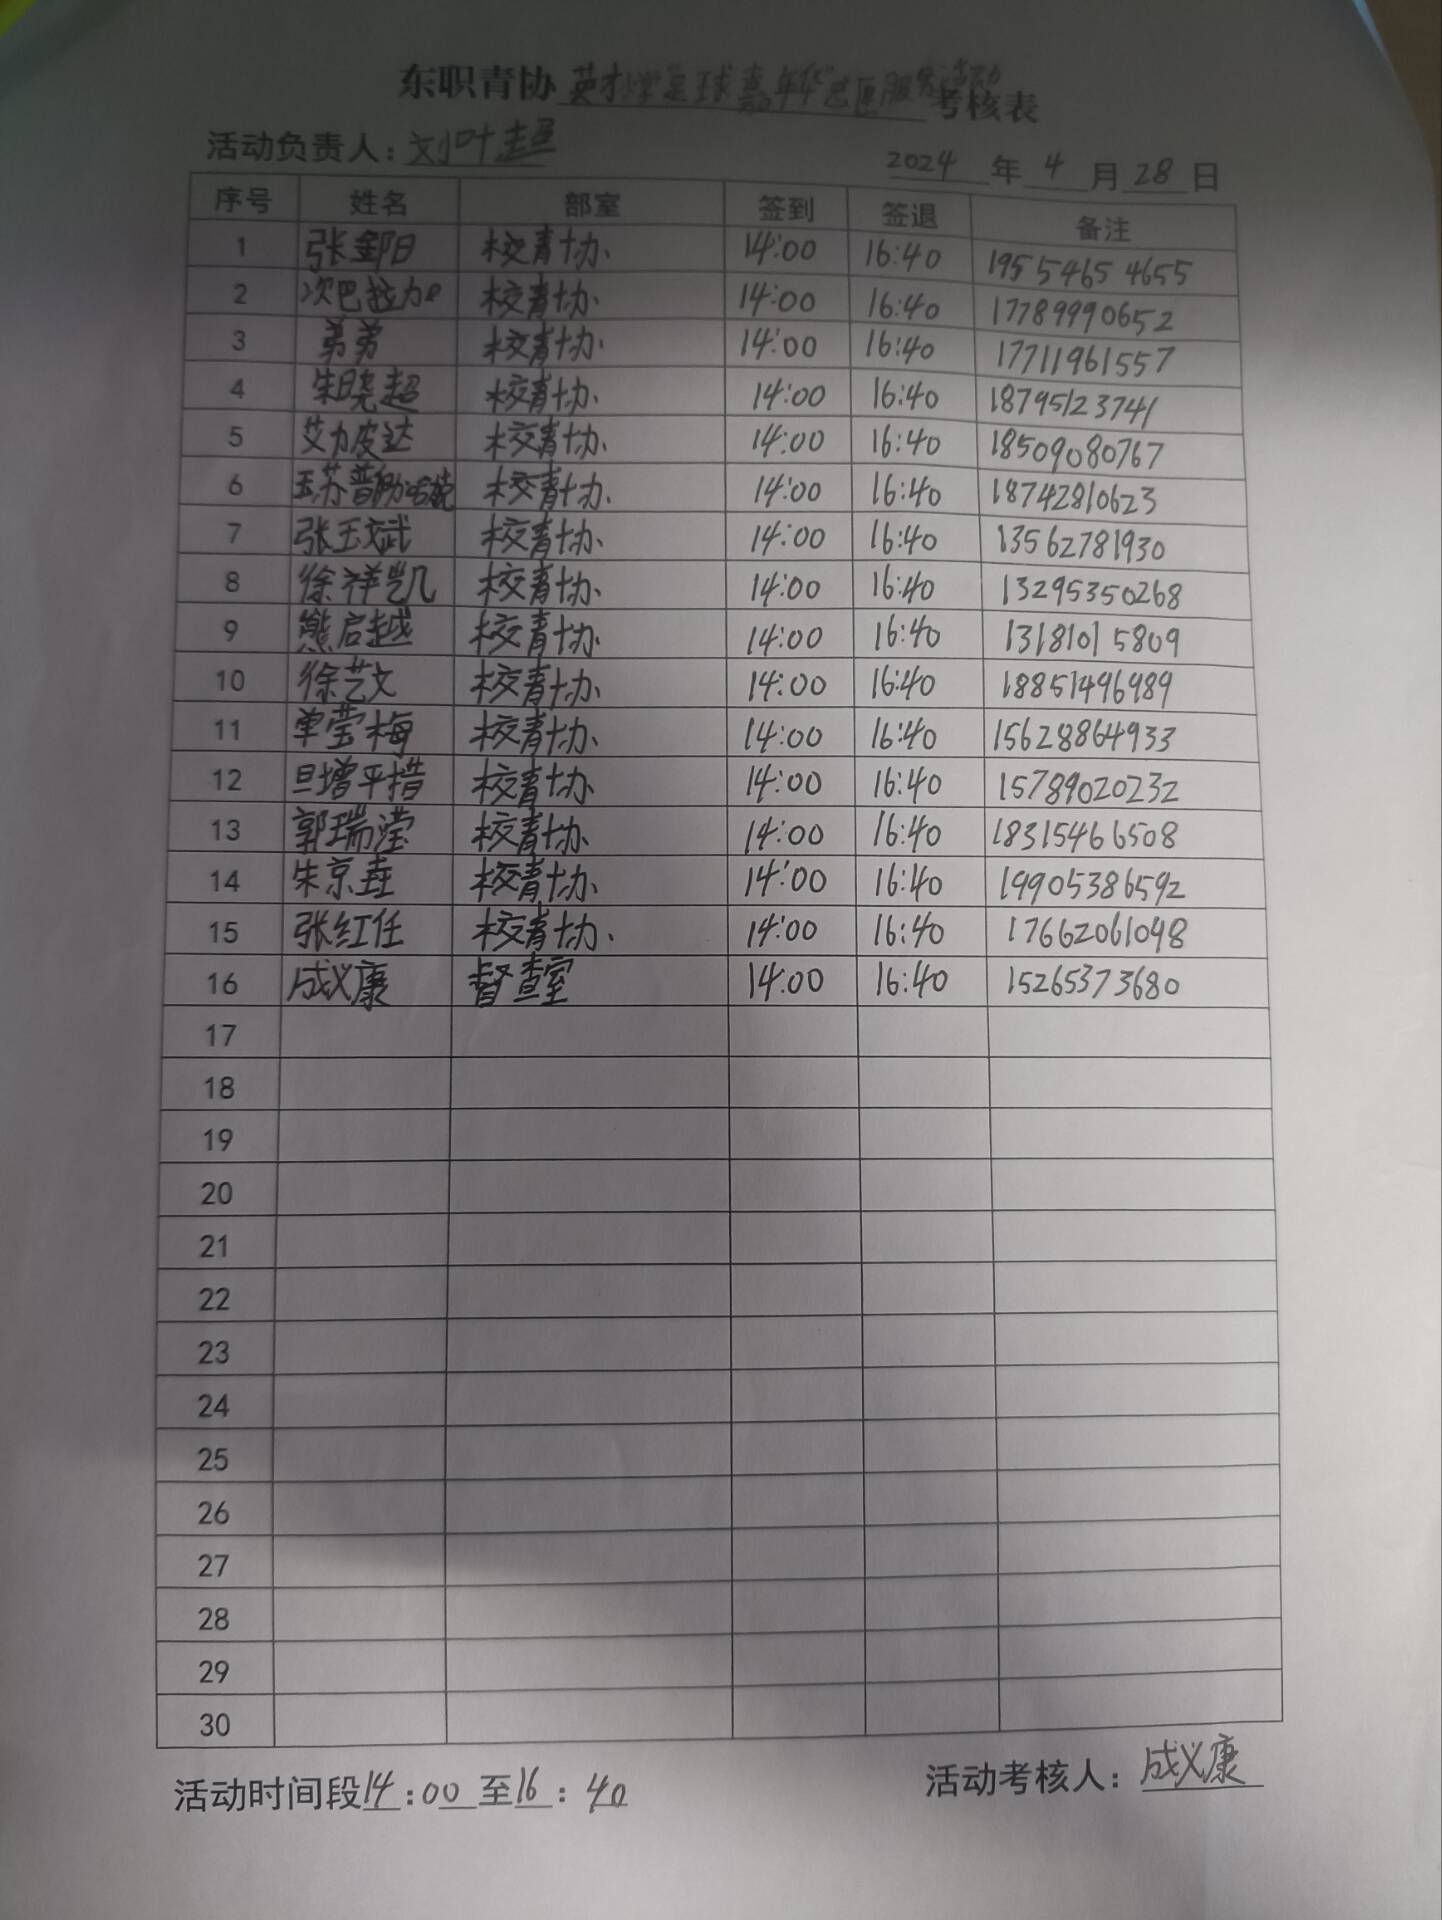 东职青协英才小学足球嘉年华志愿服务活动考核表
活动负责人：刘叶超 2024年4月28日
序号 姓名 部室 签到 签退 备注
1 校青协 14:00 16:40 19554654655
2 次巴拉加 校青协 14:00 16:40 17789990652
3 弟弟 校青协 14:00 16:40 17711961557
4 朱晓超 校青协 14:00 16:40 18795123741
5 艾力皮达 校青协 14:00 16:40 18509080767
6 校青协 14:00 16:40 18742810623
7 张玉斌 校青协 14:00 16:40 13562781930
8 徐祥凯 校青协 14:00 16:40 13295350268
9 熊启越 校青协 14:00 16:40 13181015809
10 徐艺文 校青协 14:00 16:40 18851496989
11 单莹梅 校青协 14:00 16:40 15628864933
12 旦增平措 校青协 14:00 16:40 15789020232
13 郭瑞滢 校青协 14:00 16:40 18315466508
14 朱京垚 校青协 14:00 16:40 19905386592
15 张红任 校青协 14:00 16:40 17662061098
16 成义康 督查室 14:00 16:40 15265373680
17
18
19
20
21
22
23
24
25
26
27
28
29
30
活动时间段14:00至16:40 活动考核人：成义康